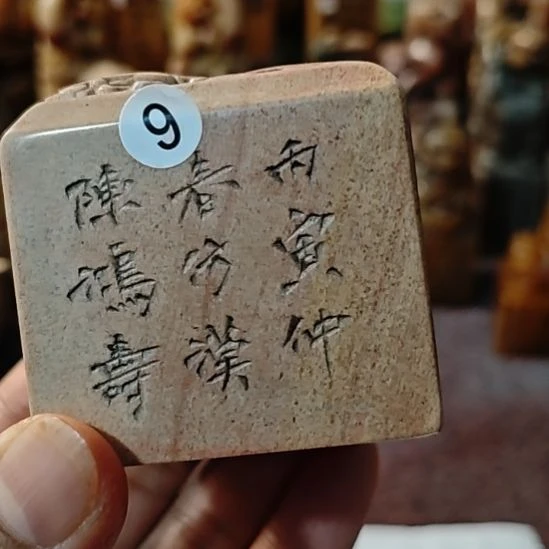 丙寅仲
春仿漢
陳鴻壽
9